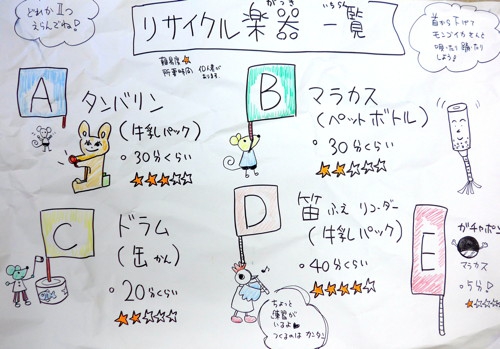 どれか1つ
えらんでね!
リサイクル楽器一覧
がっき いちらん
難易度★
所要時間
首から下げて
モンゴイカさんと
しよう♪
A
タンバリン
(牛乳パック)
・30分くらい
★★★☆☆
B
マラカス
(ペットボトル)
・30分くらい
★★☆☆☆
C
ドラム
(缶 かん)
・20分くらい
★★☆☆☆
D
笛 ふえ リコーダー
(牛乳パック)
・40分くらい
★★★★☆
ちょっと
練習が
いるよ
つくるのは カンタン
E
ガチャポン
マラカス
・5分